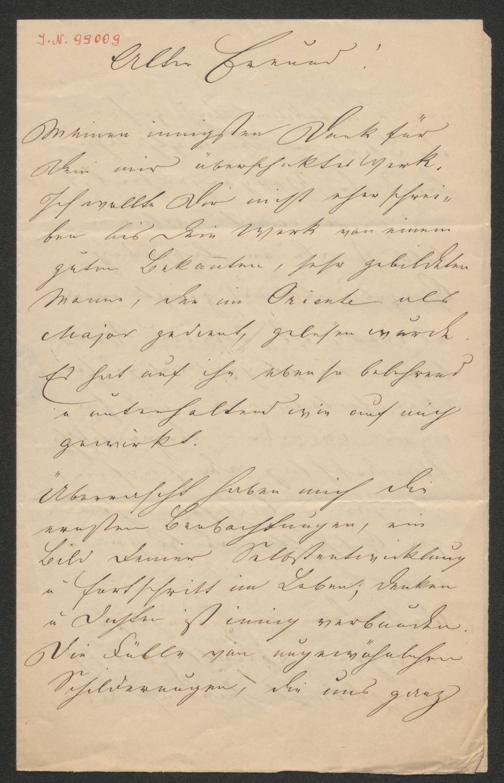 J. N. 99009
Alter Freund!
Meinen innigsten Dank für
Dein mir überschiktes Werk.
Ich wollte Dir nicht eher schrei-
ben bis Dein Werk von einem
guten Bekannten, sehr gebildeten
Manne, der im Oriente als
Major gedient, gelesen wurde.
Es hat auf ihn ebenso belehrend
u unterhaltend wie auf mich
gewirkt.
Überrascht haben mich die
ernsten Beobachtungen, ein
Bild Deiner Selbstentwicklung
u fortschritt im Leben; denken
u Dichten ist innig verbunden.
Die Fülle von ungewöhnlichen
Schilderungen, die uns ganz